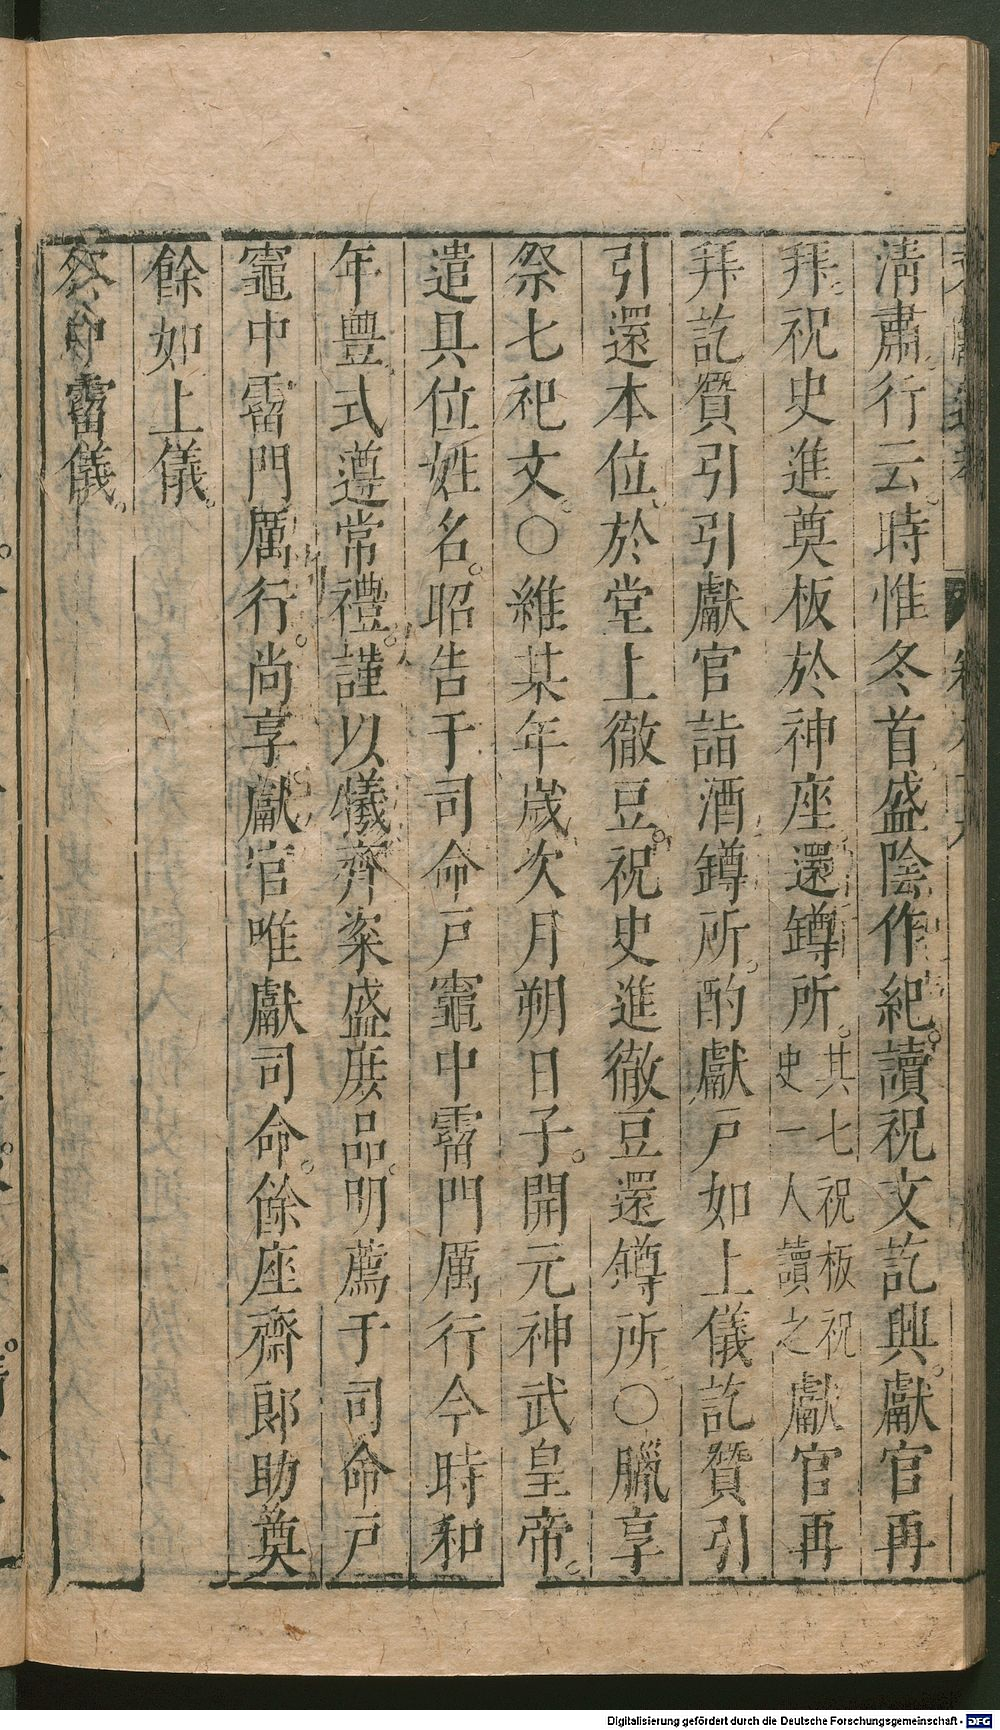 清肅行云時惟冬首盛陰作紀讀祝文訖興獻官再
拜祝史進奠板於神座還罇所其七祝板祝史一人讀之獻官再
拜訖贊引引獻官詣酒罇所酌獻戶如上儀訖贊引
引還本位於堂上徹豆祝史進徹豆還罇所〇臘享
祭七祀文〇維某年歲次月朔日子開元神武皇帝
遣具位姓名昭告于司命戶竈中霤門厲行今時和
年豊式遵常禮謹以犧齊粢盛庶品明薦于司命戶
竈中霤門厲行尚享獻官唯獻司命餘座齋郎助奠
餘如上儀
祭中霤儀
Digitalisierung gefördert durch die Deutsche Forschungsgemeinschaft - DFG